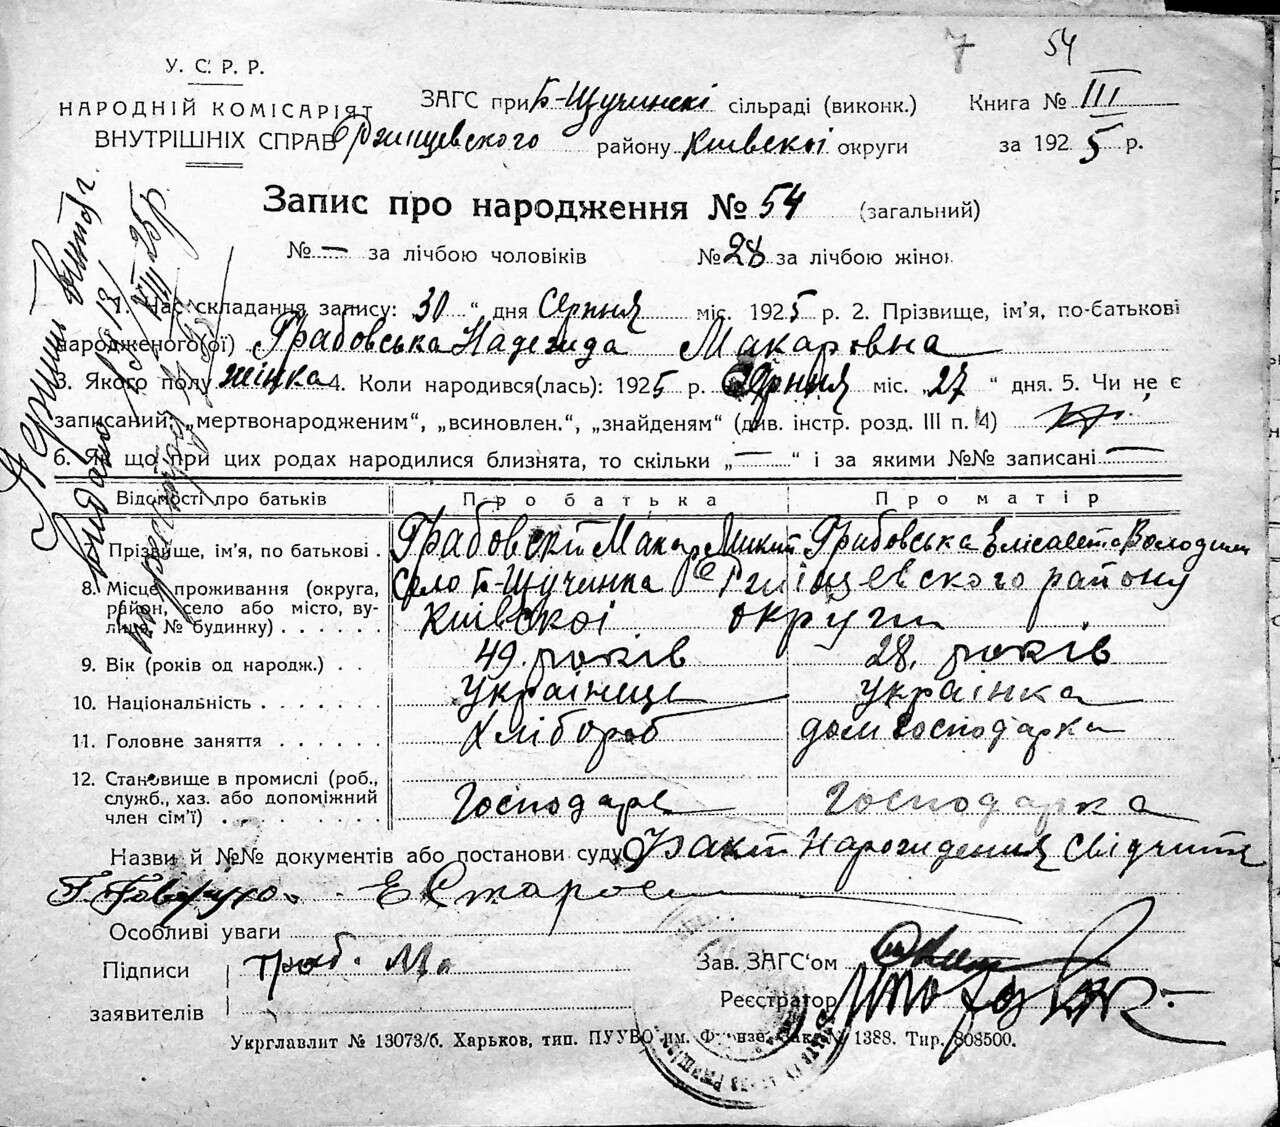 7 54
У. С. Р. Р.
НАРОДНІЙ КОМІСАРІЯТ
ВНУТРІШНІХ СПРАВ
ЗАГС при Б-Щучинскі сільраді (виконк.) Книга № III
Ржищевского району Київскоі округи за 1925 р.
Запис про народження № 54 (загальний)
№ — за лічбою чоловіків № 28 за лічбою жінок
1. Час складання запису: 30 " дня Серпня міс. 1925 р. 2. Прізвище, ім'я, по-батькові
народженого(ої) Грабовська Надегида Макаровна
3. Якого полу жінка 4. Коли народився(лась): 1925 р. Серпня міс. „27 " дня. 5. Чи не є
записаний: „мертвонародженим", „всиновлен.", „знайденям" (див. інстр. розд. III п. 4)
6. Як що при цих родах народилися близнята, то скільки „—" і за якими №№ записані —
Відомості про батьків Про батька Про матір
Прізвище, ім'я, по батькові . Грабовскі Макар Микит Грабовська Елісавета Володим
8. Місце проживання (округа, район, село або місто, вулиця, № будинку) . . . . . . Село Б-Щучинка Ржищевского району
Київскоі округи
9. Вік (років од народж.) . . 49. років 28. років
10. Національність . . . . . . Украінець Украінка
11. Головне заняття . . . . . Хлібороб дом господарка
12. Становище в промислі (роб., служб., хаз. або допоміжний член сім'ї) . . Господарь Господарка
Назви й №№ документів або постанови суду Факт Нарогидения Свідчить
Особливі уваги
Підписи
заявителів Граб. Ма
Зав. ЗАГС'ом
Реєстратор
Укрглавлит № 13073/б. Харьков, тип. ПУУВО им. Фрунзе. Зак. № 1388. Тир. 808500.